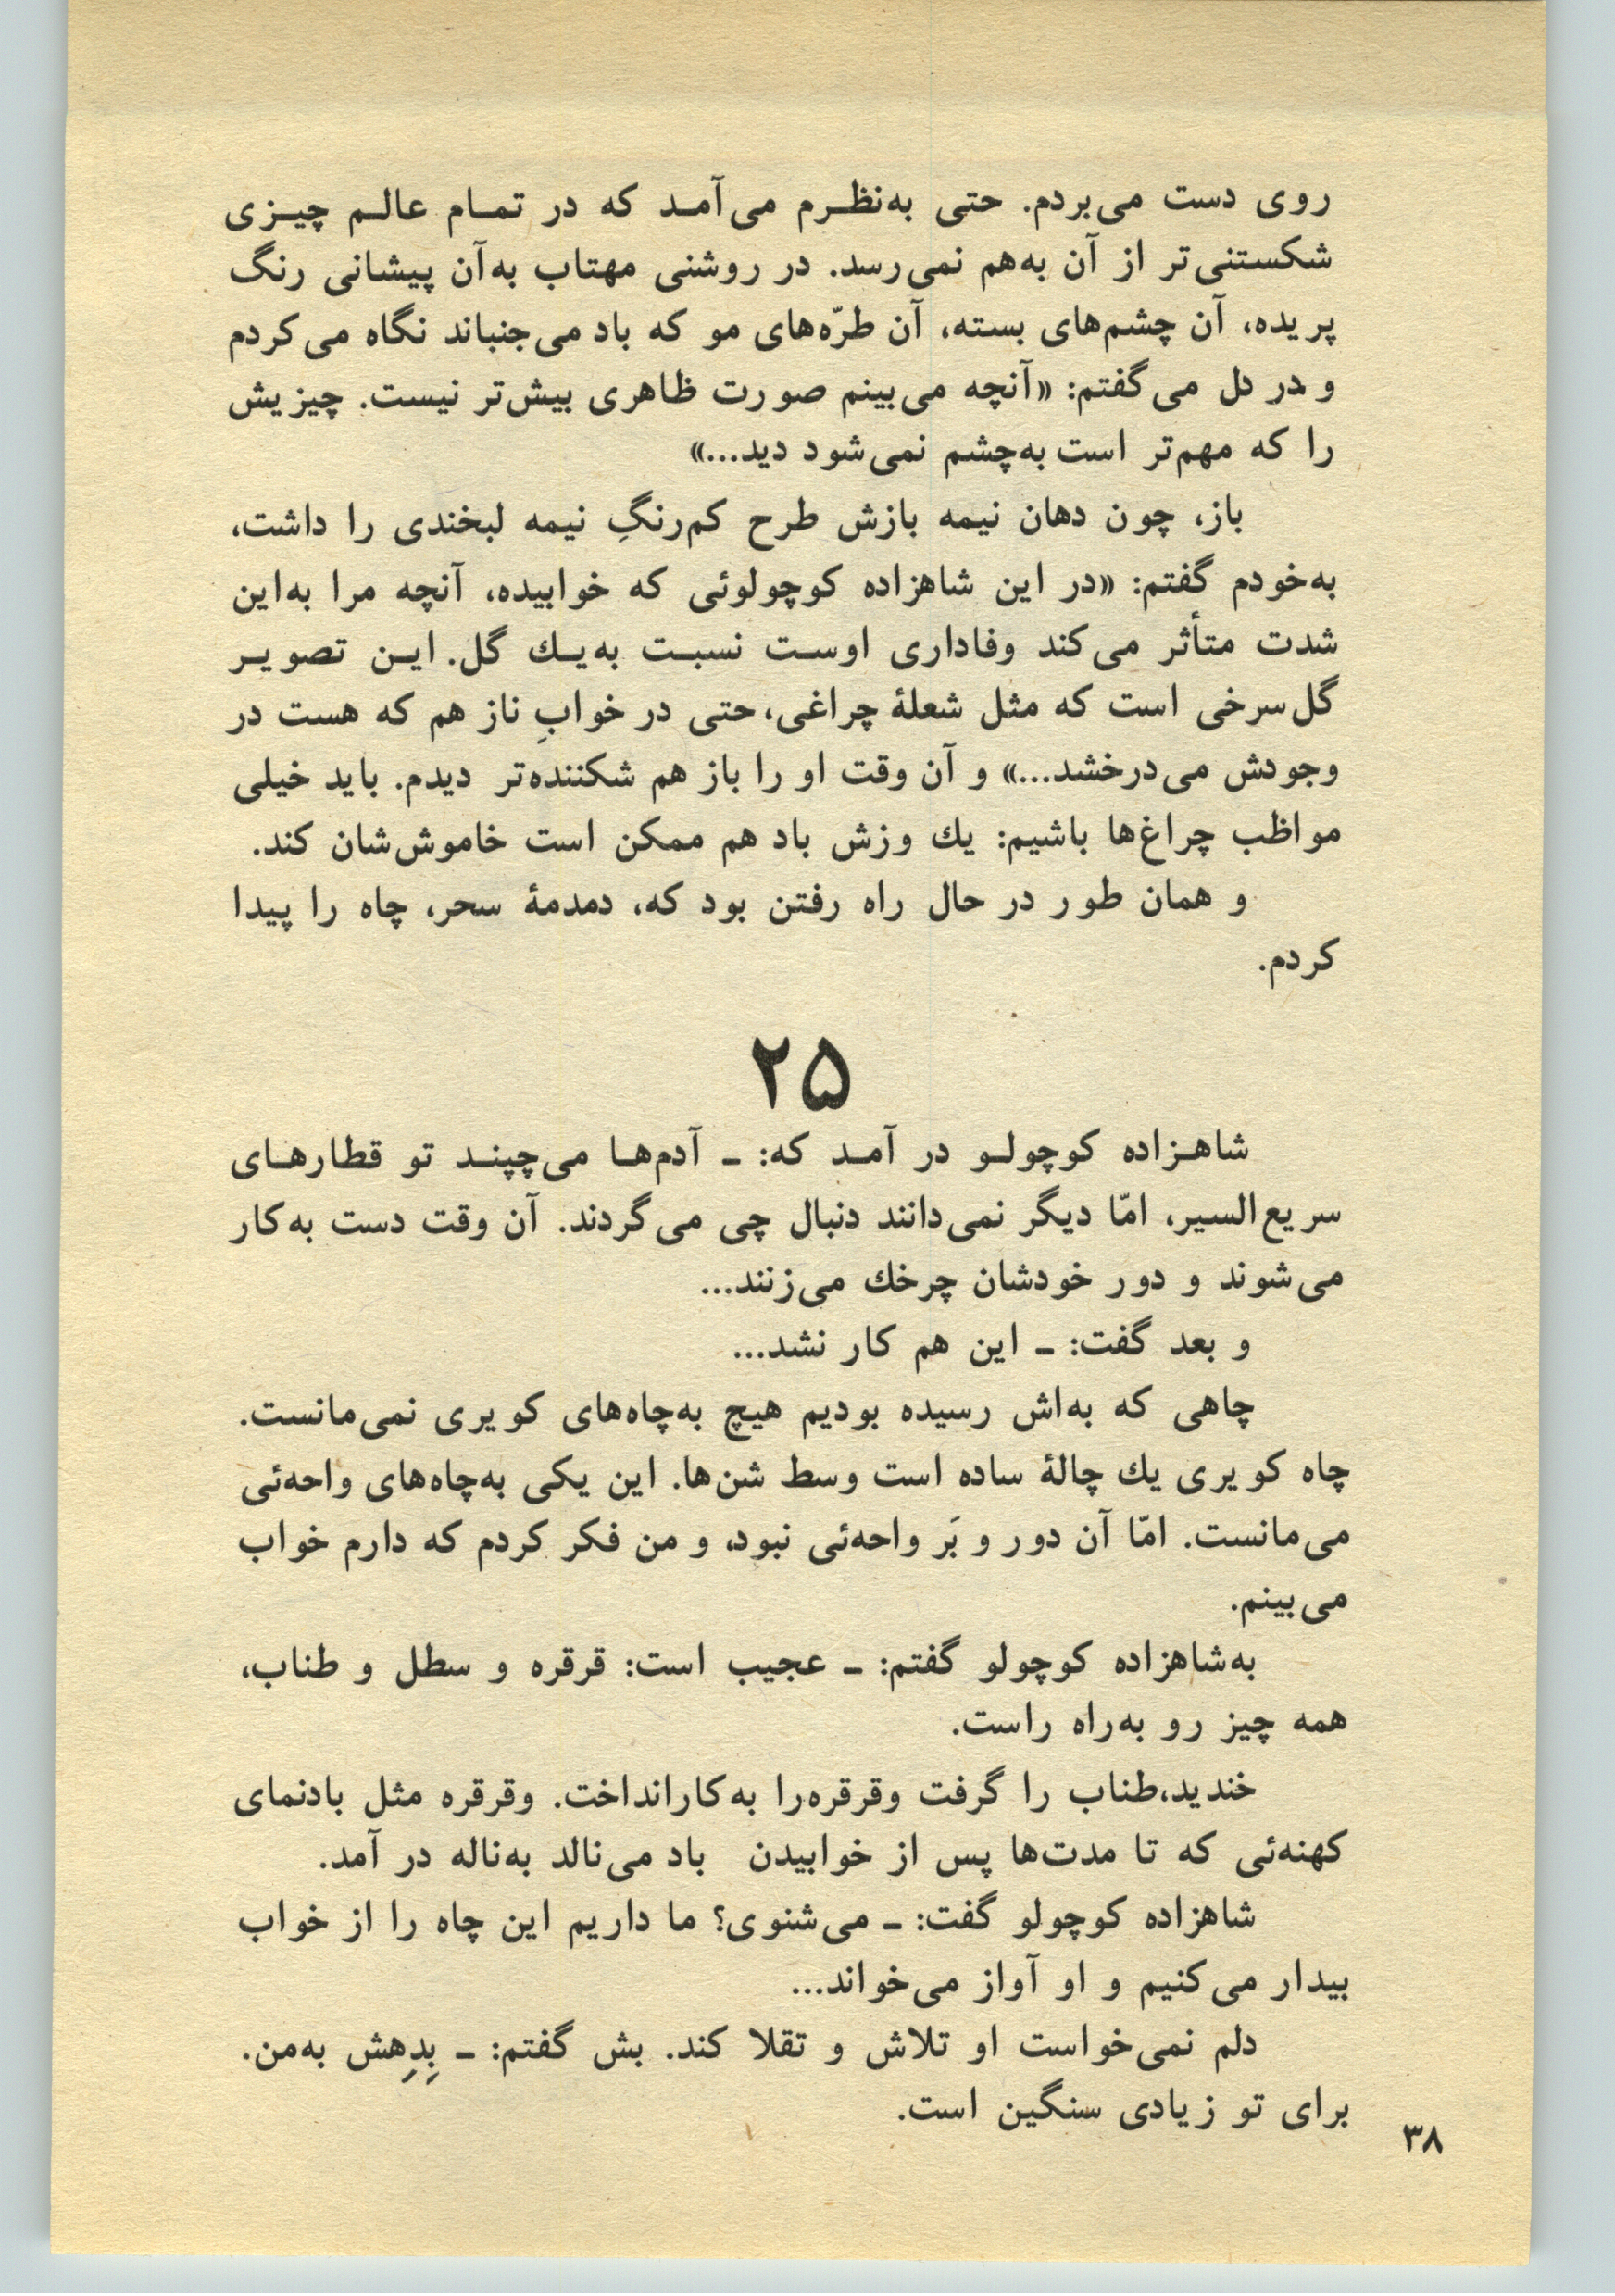 روی دست می‌بردم. حتی به‌نظرم می‌آمد که در تمام عالم چیزی
شکستنی‌تر از آن به‌هم نمی‌رسد. در روشنی مهتاب به‌آن پیشانی رنگ
پریده، آن چشم‌های بسته، آن طرّه‌های مو که باد می‌جنباند نگاه می‌کردم
و در دل می‌گفتم: «آنچه می‌بینم صورت ظاهری بیش‌تر نیست. چیزیش
را که مهم‌تر است به‌چشم نمی‌شود دید...»
باز، چون دهان نیمه بازش طرح کم‌رنگِ نیمه لبخندی را داشت،
به‌خودم گفتم: «در این شاهزاده کوچولوئی که خوابیده، آنچه مرا به‌این
شدت متأثر می‌کند وفاداری اوست نسبت به‌یك گل. این تصویر
گل‌سرخی است که مثل شعلهٔ چراغی، حتی در خوابِ ناز هم که هست در
وجودش می‌درخشد...» و آن وقت او را باز هم شکننده‌تر دیدم. باید خیلی
مواظب چراغ‌ها باشیم: یك وزش باد هم ممکن است خاموش‌شان کند.
و همان طور در حال راه رفتن بود که، دمدمهٔ سحر، چاه را پیدا
کردم.
۲۵
شاهزاده کوچولو در آمد که: ـ آدم‌ها می‌چپند تو قطارهای
سریع‌السیر، امّا دیگر نمی‌دانند دنبال چی می‌گردند. آن وقت دست به‌کار
می‌شوند و دور خودشان چرخك می‌زنند...
و بعد گفت: ـ این هم کار نشد...
چاهی که به‌اش رسیده بودیم هیچ به‌چاه‌های کویری نمی‌مانست.
چاه کویری یك چالهٔ ساده است وسط شن‌ها. این یکی به‌چاه‌های واحه‌ئی
می‌مانست. امّا آن دور و بَر واحه‌ئی نبود، و من فکر کردم که دارم خواب
می‌بینم.
به‌شاهزاده کوچولو گفتم: ـ عجیب است: قرقره و سطل و طناب،
همه چیز رو به‌راه راست.
خندید،طناب را گرفت وقرقره‌را به‌کارانداخت. وقرقره مثل بادنمای
کهنه‌ئی که تا مدت‌ها پس از خوابیدن باد می‌نالد به‌ناله در آمد.
شاهزاده کوچولو گفت: ـ می‌شنوی؟ ما داریم این چاه را از خواب
بیدار می‌کنیم و او آواز می‌خواند...
دلم نمی‌خواست او تلاش و تقلا کند. بش گفتم: ـ بِدِهِش به‌من.
برای تو زیادی سنگین است.
۳۸